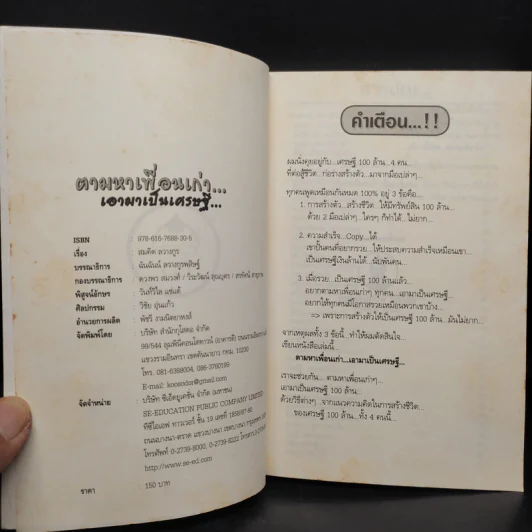 ตามหาเพื่อนเก่า...
เอามาเป็นเศรษฐี...
ISBN 978-616-7688-30-5
เรื่อง : สมคิด ลวางกูร
บรรณาธิการ : ฉันฉันน์ ลวางกูรพสิษฐ์
กองบรรณาธิการ : ดวงพร สมวงศ์ / วีระวัฒน์
พิสูจน์อักษร : วันก์วิไล แซ่แต้
ศิลปกรรม : วิชัย อุ่นแก้ว
อำนวยการผลิต : พัชรี งามนิตยาพงส์
จัดพิมพ์โดย : บริษัท สำนักกู๊สดอ จำกัด
99/544
แขวงรามอินทรา เขตคันนายาว กทม. 10230
โทร. 081-6388004, 086-3760199
E-mail:
จัดจำหน่าย : บริษัท ซีเอ็ดยูเคชั่น จำกัด (มหาชน)
SE-EDUCATION PUBLIC COMPANY LIMITED
ทีซีไอเอฟ ทาวเวอร์ ชั้น 19 เลขที่ 1858/87-90
ถนนบางนา-ตราด แขวงบางนา เขตบางนา กรุงเทพฯ
โทรศัพท์ 0-2739-8000, 0-2739-8222
http://www.se-ed.com
ราคา 150 บาท
คำเตือน...!!
ผมนั่งคุยอยู่กับ...เศรษฐี 100 ล้าน...4 คน...
ที่ต่อสู้ชีวิต...ก่อร่างสร้างตัว...มาจากมือเปล่าๆ...
ทุกคนพูดเหมือนกันหมด 100% อยู่ 3 ข้อคือ...
1. การสร้างตัว...สร้างชีวิต ให้มีทรัพย์สิน 100 ล้าน...
ด้วย 2 มือเปล่าๆ...ใครๆ ก็ทำได้...ไม่ยาก...
2. ความสำเร็จ...Copy...ได้
เขาปั้นคนที่อยากรวย...ให้ประสบความสำเร็จเหมือนเขา...
เป็นเศรษฐีเงินล้านได้...นับพันคน...
3. เมื่อรวย...เป็นเศรษฐี 100 ล้านแล้ว...
อยากตามหาเพื่อนเก่าๆ ทุกคน...เอามาเป็นเศรษฐี...
อยากให้ทุกคนมีโอกาสรวยเหมือนพวกเขาบ้าง...
=> เพราะการสร้างตัวให้เป็นเศรษฐี 100 ล้าน...มันไม่ยาก...
จากเหตุผลทั้ง 3 ข้อนี้...ทำให้ผมตัดสินใจ...
เขียนหนังสือเล่มนี้...
ตามหาเพื่อนเก่า...เอามาเป็นเศรษฐี...
เราจะช่วยกัน... ตามหาเพื่อนเก่าๆ...
เอามาเป็นเศรษฐี 100 ล้าน...
ด้วยวิธีต่างๆ ...จากแนวความคิดในการสร้างชีวิต...
ของเศรษฐี 100 ล้าน...ทั้ง 4 คนนี้...